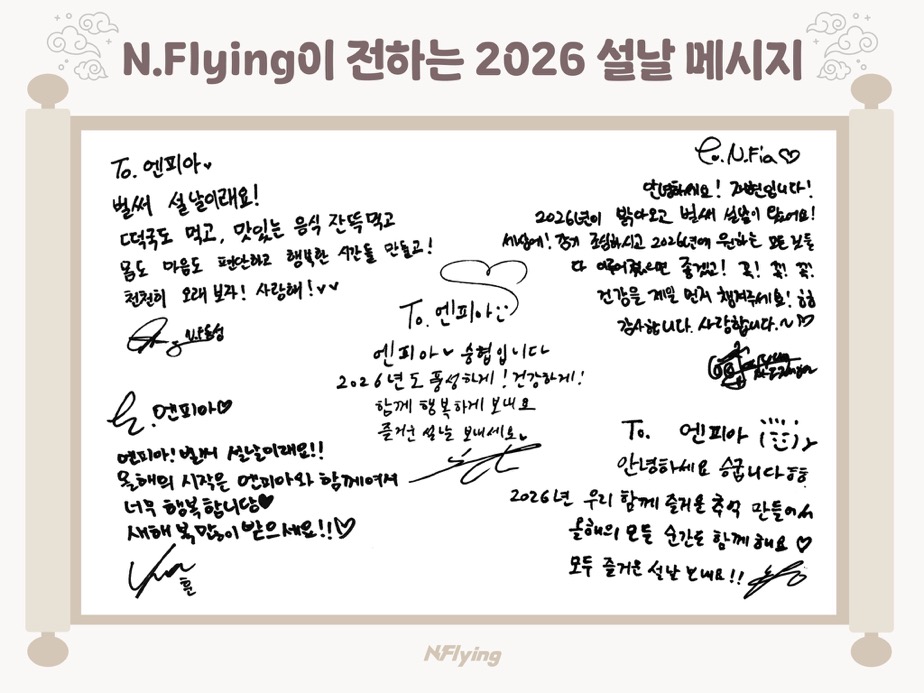 N.Flying이 전하는 2026 설날 메시지
To. 엔피아♥
벌써 설날이래요!
떡국도 먹고, 맛있는 음식 잔뜩먹고
몸도 마음도 편안하고 행복한 시간들 만들고!
천천히 오래 보자! 사랑해!♥♥
N.F유회승
To. N.Fia♡
안녕하세요! 재현입니다!
2026년이 밝아오고 벌써 설날이 왔어요!
세상에! 감기 조심하시고 2026년에 원하는 모든 것들
다 이루어졌으면 좋겠고! 꼭! 꼭! 꼭!
건강을 제일 먼저 챙겨주세요! ㅎㅎ
감사합니다. 사랑합니다.~♡
To. 엔피아:)
엔피아♥ 승협입니다
2026년도 풍성하게! 건강하게!
함께 행복하게 보내요
즐거운 설날 보내세요♥
To. 엔피아♡
엔피아! 벌써 설날이래요!!
올해의 시작은 엔피아와 함께여서
너무 행복합니당♥
새해 복 많이 받으세요!!♡
훈
To. 엔피아
안녕하세요 회승입니다ㅎㅎ
2026년 우리 함께 즐거운 추억 만들어서
올해의 모든 순간도 함께해요♡
모두 즐거운 설날 보내요!!
N.Flying